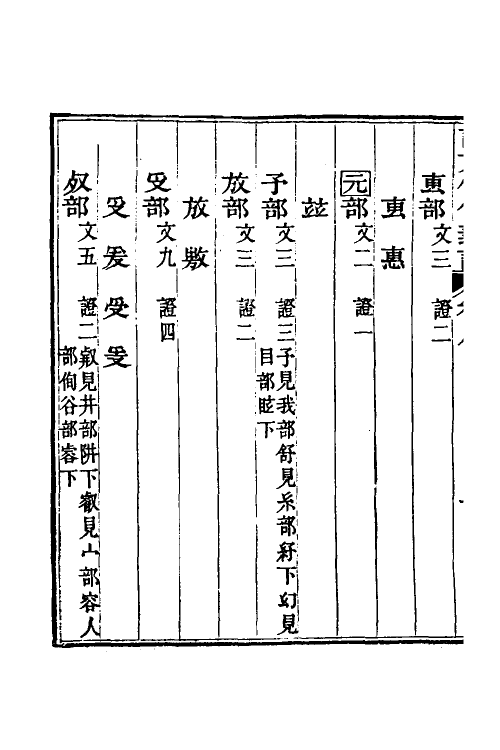 叀部文三 證二
叀 惠
元部文二 證一
玆
予部文三 證三予見我部舒見糸部紓下幻見
目部眩下
放部文三 證二
放 敫
𠬪部文九 證四
𠬪 爰 受
𣦼部文五 證二叡見井部阱下叡見宀部容人
部侚谷部容下